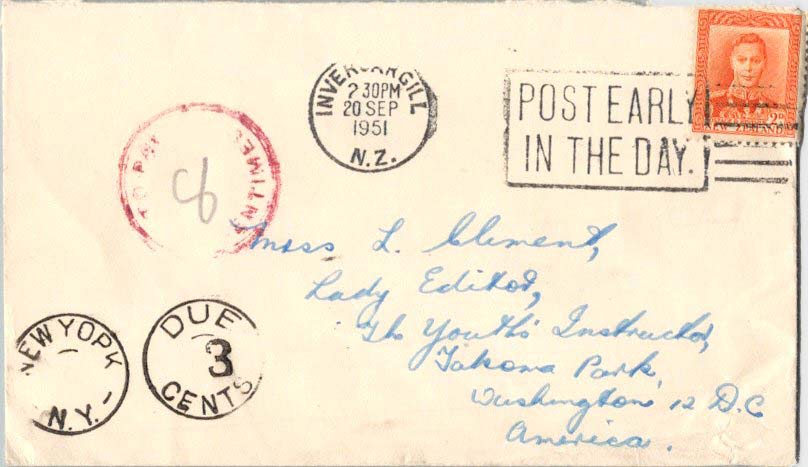 INVERCARGILL
2 30PM
20 SEP
1951
N.Z.
POST EARLY
IN THE DAY.
2D
NEW ZEALAND
CENTIMES
8
Miss L. Clement,
Lady Editor,
The Youth's Instructor,
Takoma Park,
Washington 12 D.C
America.
NEW YORK
N.Y.
DUE
3
CENTS